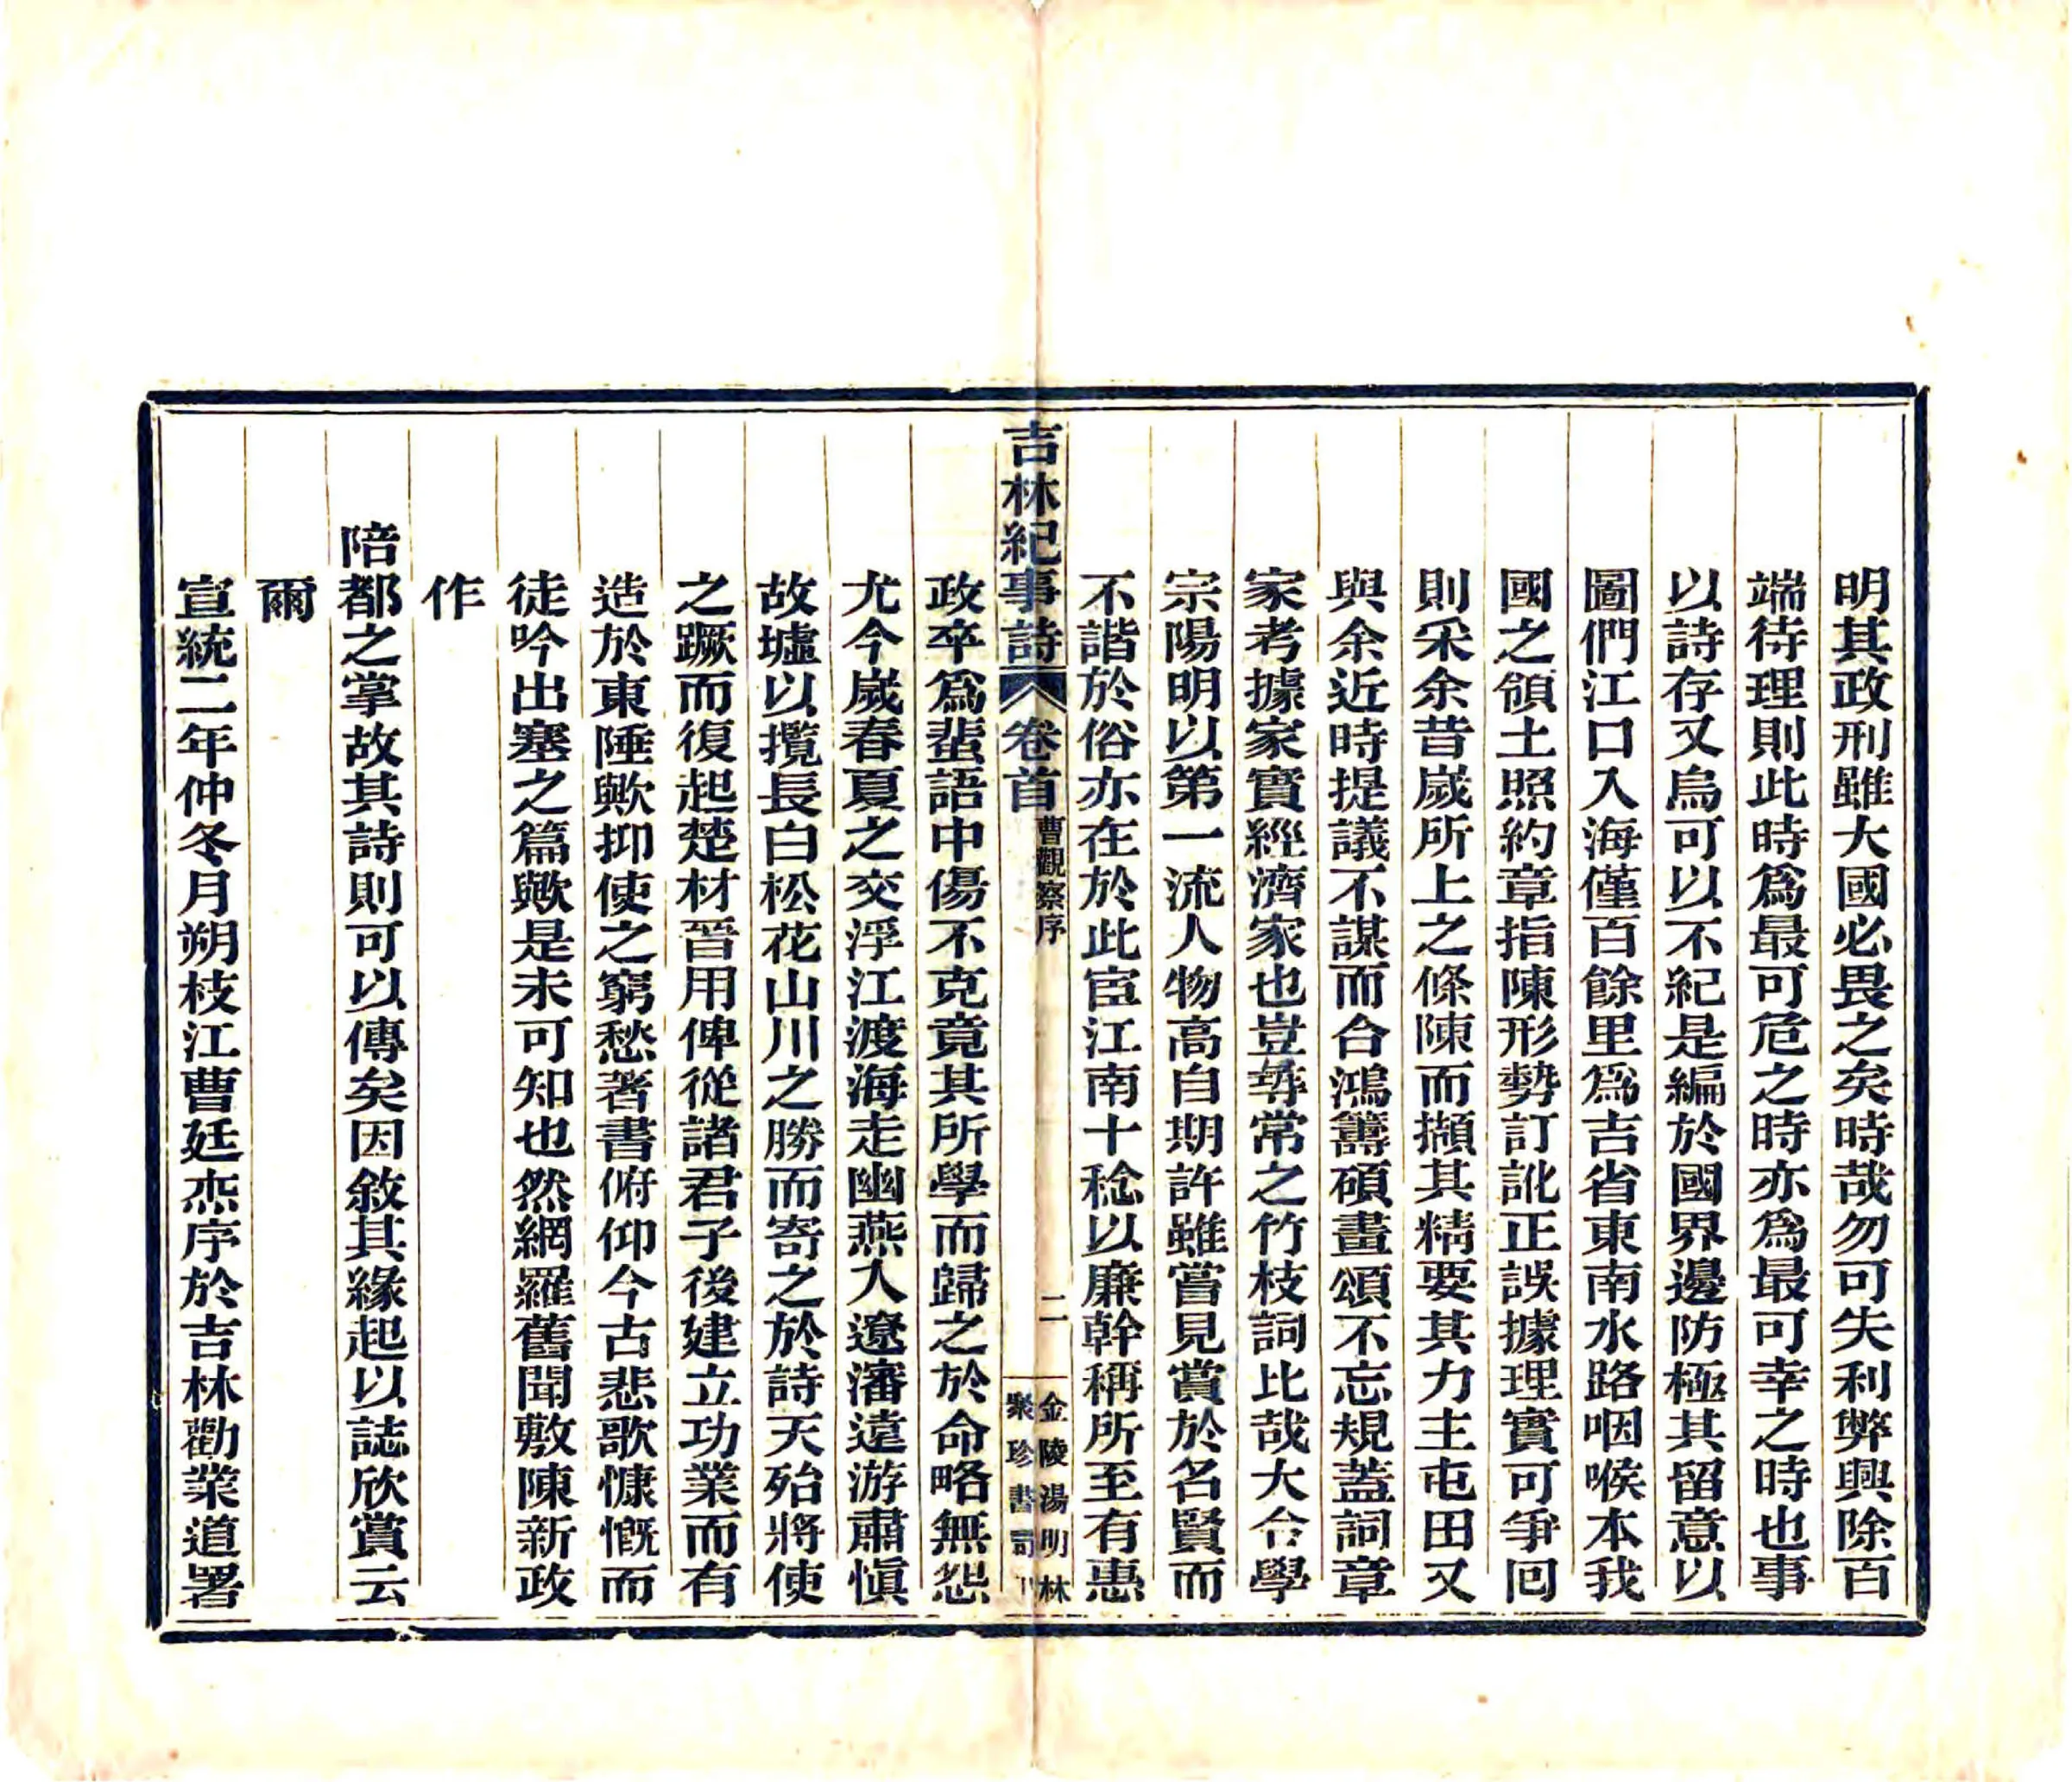 明其政刑雖大國必畏之矣時哉勿可失利弊興除百
端待理則此時爲最可危之時亦爲最可幸之時也事
以詩存又烏可以不紀是編於國界邊防極其留意以
圖們江口入海僅百餘里爲吉省東南水路咽喉本我
國之領土照約章指陳形勢訂訛正誤據理實可爭回
則采余昔歲所上之條陳而擷其精要其力主屯田又
與余近時提議不謀而合鴻籌碩畫頌不忘規蓋詞章
家考據家實經濟家也豈尋常之竹枝詞比哉大令學
宗陽明以第一流人物高自期許雖嘗見賞於名賢而
不諧於俗亦在於此宦江南十稔以廉幹稱所至有惠
吉林紀事詩 卷首 曹觀察序 二 金陵湯明林聚珍書局
政卒爲蜚語中傷不克竟其所學而歸之於命略無怨
尤今歲春夏之交浮江渡海走幽燕入遼瀋遠游肅愼
故墟以攬長白松花山川之勝而寄之於詩天殆將使
之蹶而復起楚材晉用俾從諸君子後建立功業而有
造於東陲歟抑使之窮愁著書俯仰今古悲歌慷慨而
徒吟出塞之篇歟是未可知也然網羅舊聞敷陳新政
作
陪都之掌故其詩則可以傳矣因敘其緣起以誌欣賞云
爾
宣統二年仲冬月朔枝江曹廷杰序於吉林勸業道署